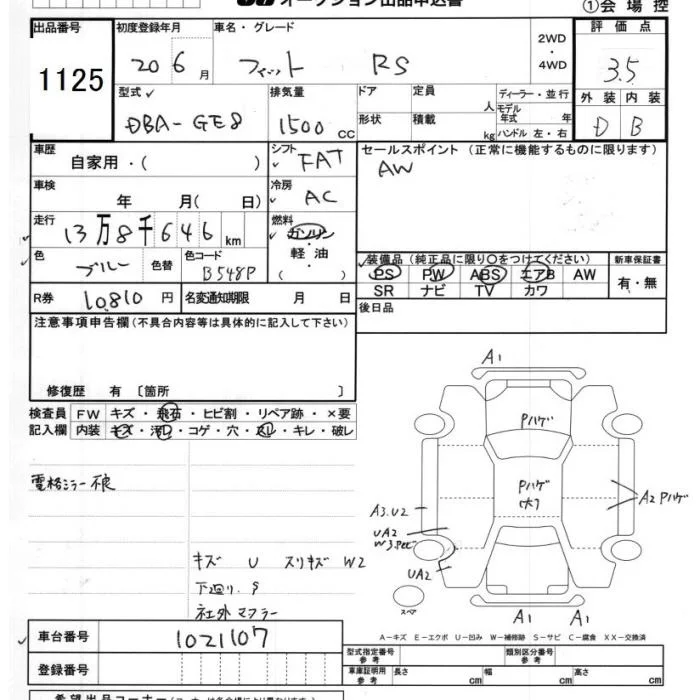 オークション出品申込書
①会場控
出品番号 初度登録年月 車名・グレード 2WD・4WD 評価点
1125 20 6月 フィット RS 3.5
型式 排気量 ドア 定員 人 ディーラー・並行 モデル年式 年 外装 内装
DBA-GE8 1500 CC 形状 積載 kg ハンドル 左・右 D B
車歴 自家用・( ) シフト FAT セールスポイント (正常に機能するものに限ります)
AW
車検 年 月( 日) 冷房 AC
走行 13万8千646km 燃料 ガソリン・軽油・( )
色 ブルー 色替 色コード B548P
装備品(純正品に限り○をつけてください) 新車保証書
PS PW ABS エアB AW 有・無
SR ナビ TV カワ
R券 10810円 名変通知期限 月 日
後日品
注意事項申告欄(不具合内容等は具体的に記入して下さい)
修復歴 有 〔箇所 〕
検査員 FW キズ・飛石・ヒビ割・リペア跡・×要
記入欄 内装 キズ・汚れ・コゲ・穴・スレ・キレ・破レ
A1
Pハゲ
Pハゲ
(大)
A2 Pハゲ
A3.U2
UA2
UA2
電格ミラー不良
キズ U スリキズ W2
下廻り.S
社外マフラー
スペア
A1 A1
A-キズ E-エクボ U-凹み W-補修跡 S-サビ C-腐食 XX-交換済
車台番号 1021107
型式指定番号 参考 類別区分番号 参考
登録番号
車庫証明用 参考 長さ cm 幅 cm 高さ cm
希望出品コーナー